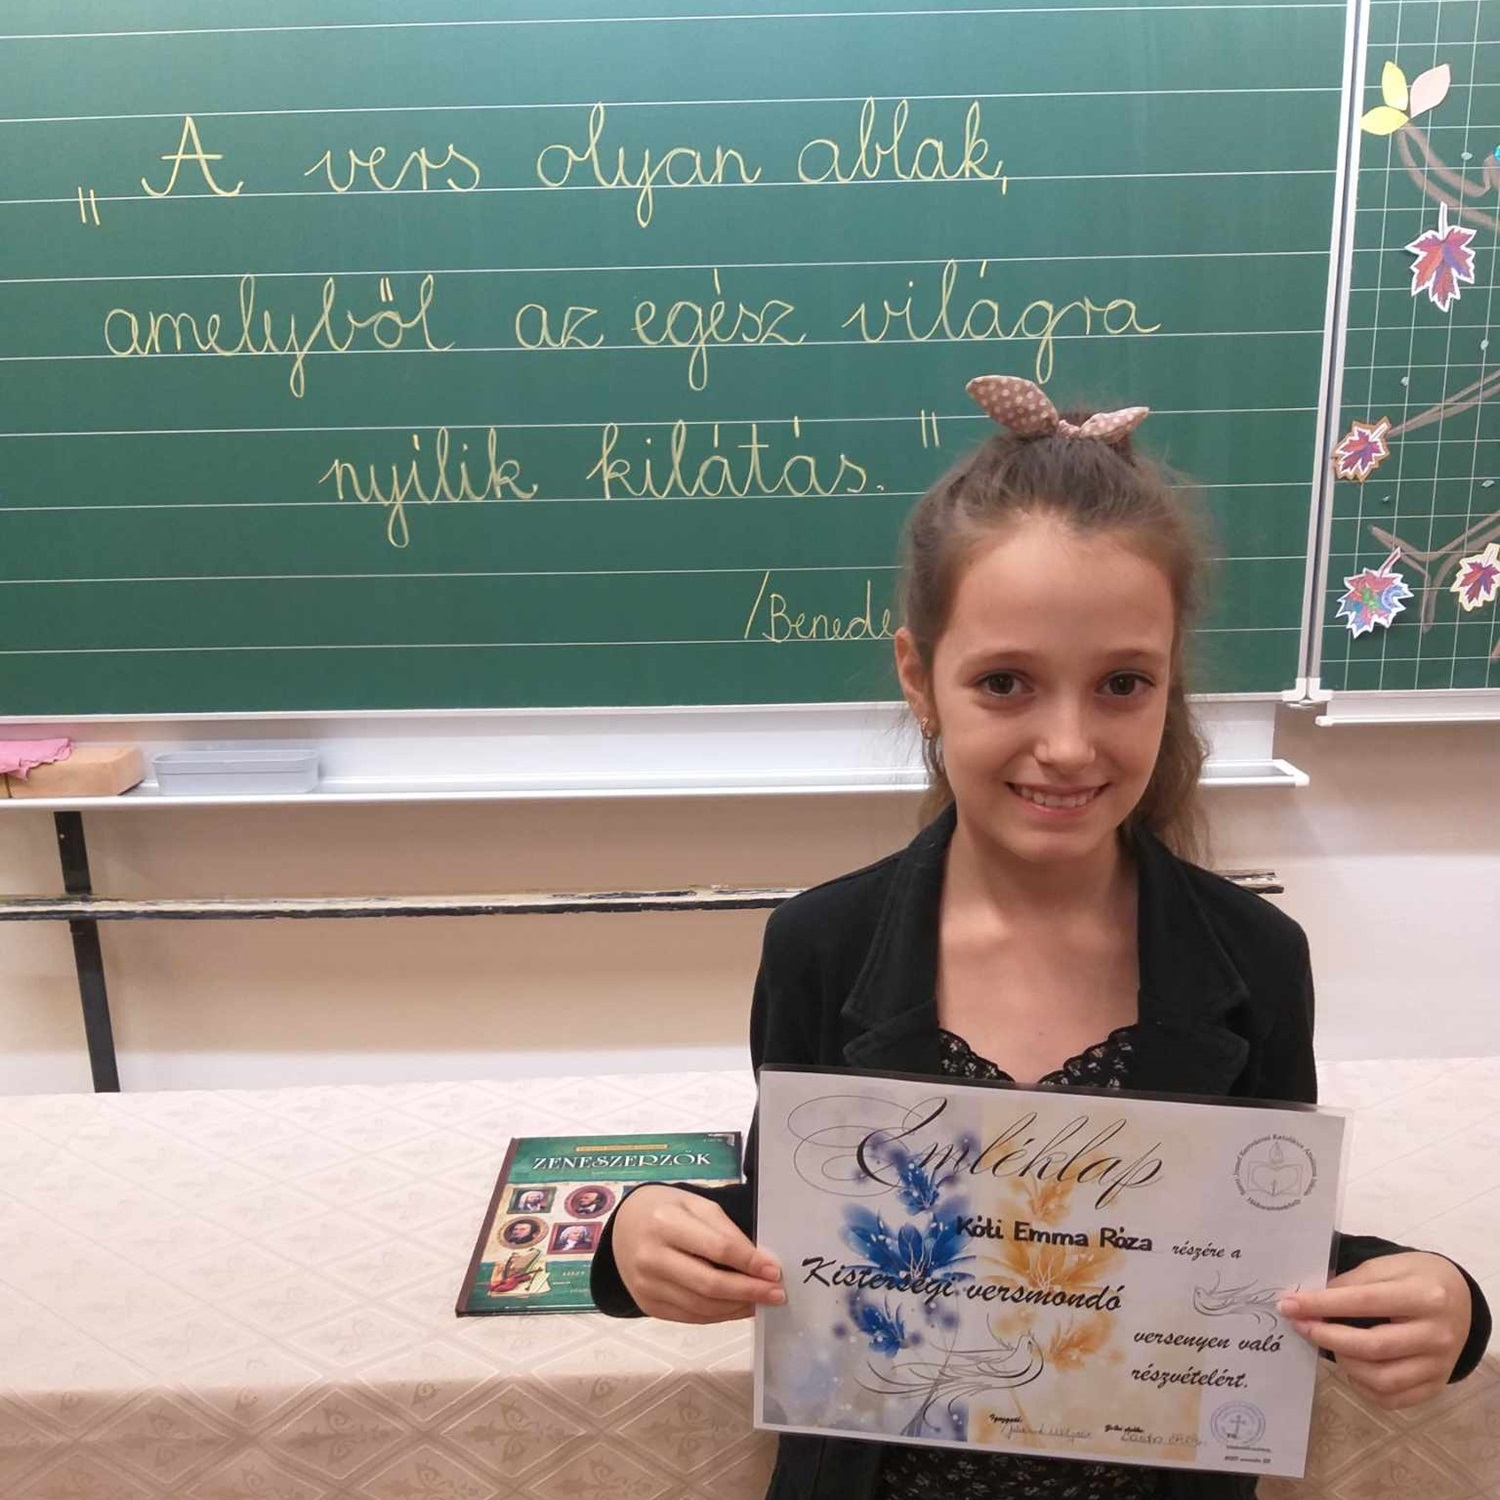 „ A vers olyan ablak,
amelyből az egész világra
nyílik kilátás. "
/Benede
ZENESZERZŐK
Emléklap
Kóti Emma Róza részére a
Kistérségi versmondó
versenyen való
részvételért.